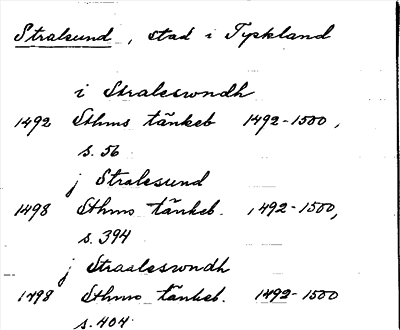 Stralsund, stad i Tyskland
i Straleswndh
1492 Sthms tänkeb 1492-1500,
s. 56
j Stralesund
1498 Sthms tänkeb. 1492-1500,
s. 394
j Straaleswndh
1498 Sthms tänkeb. 1492-1500
s. 404